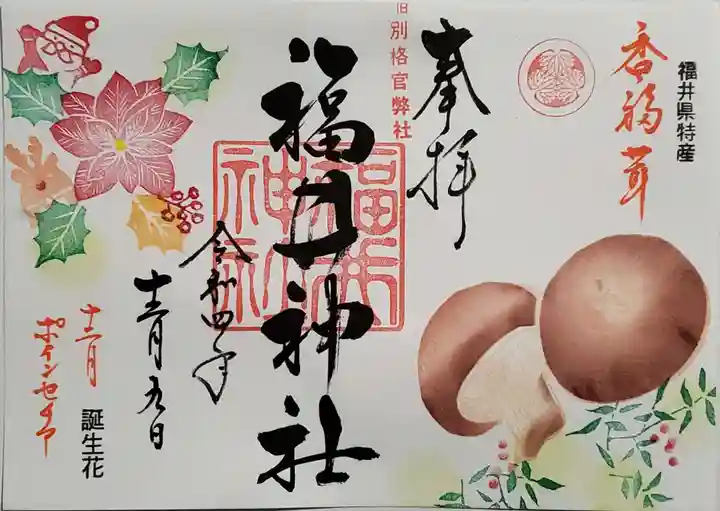 福井県特産
香福茸
奉拝
旧別格官弊社
福井神社
福井
神社
令和四年
十二月九日
誕生花
十二月
ポインセチア